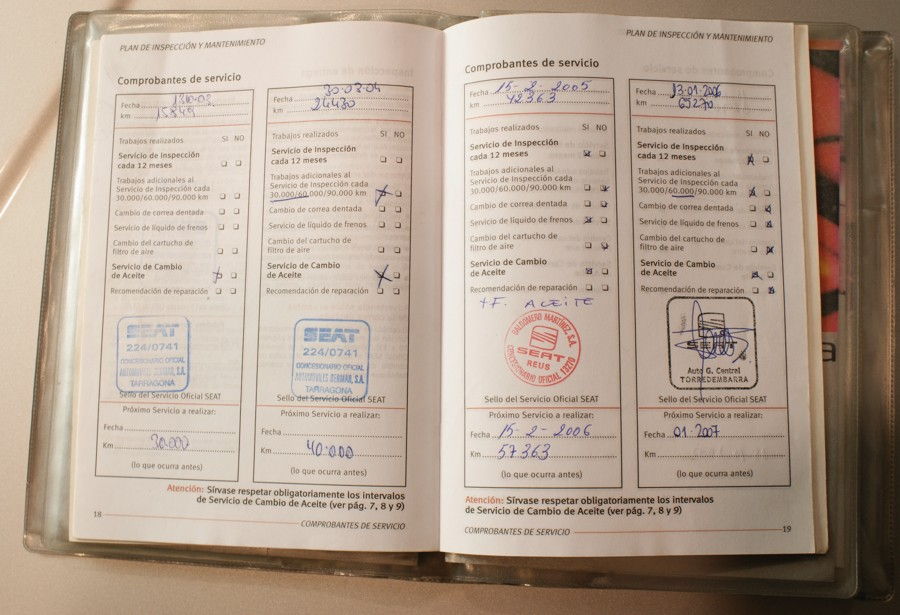 PLAN DE INSPECCIÓN Y MANTENIMIENTO
Comprobantes de servicio
Fecha
km 15849
Trabajos realizados SI NO
Servicio de Inspección
cada 12 meses
Trabajos adicionales al
Servicio de Inspección cada
30.000/60.000/90.000 km
Cambio de correa dentada
Servicio de líquido de frenos
Cambio del cartucho de
filtro de aire
Servicio de Cambio
de Aceite
Recomendación de reparación
SEAT
224/0741
CONCESIONARIO OFICIAL
TARRAGONA
Próximo Servicio a realizar:
Fecha
Km 30.000
(lo que ocurra antes)
Fecha 30-03-04
km 24430
Trabajos realizados SI NO
Servicio de Inspección
cada 12 meses
Trabajos adicionales al
Servicio de Inspección cada
30.000/60.000/90.000 km
Cambio de correa dentada
Servicio de líquido de frenos
Cambio del cartucho de
filtro de aire
Servicio de Cambio
de Aceite
Recomendación de reparación
SEAT
224/0741
CONCESIONARIO OFICIAL
TARRAGONA
Sello del Servicio Oficial SEAT
Próximo Servicio a realizar:
Fecha
Km 40.000
(lo que ocurra antes)
Atención: Sírvase respetar obligatoriamente los intervalos
de Servicio de Cambio de Aceite (ver pág. 7, 8 y 9)
18
COMPROBANTES DE SERVICIO
PLAN DE INSPECCIÓN Y MANTENIMIENTO
Comprobantes de servicio
Fecha 15-2-2005
km 42363
Trabajos realizados SI NO
Servicio de Inspección
cada 12 meses
Trabajos adicionales al
Servicio de Inspección cada
30.000/60.000/90.000 km
Cambio de correa dentada
Servicio de líquido de frenos
Cambio del cartucho de
filtro de aire
Servicio de Cambio
de Aceite
Recomendación de reparación
+F. ACEITE
BALDOMERO MARTINEZ, S.A.
SEAT
REUS
CONCESIONARIO OFICIAL 13270
Sello del Servicio Oficial SEAT
Próximo Servicio a realizar:
Fecha 15-2-2006
Km 57363
(lo que ocurra antes)
Fecha 13-01-2006
km 65270
Trabajos realizados SI NO
Servicio de Inspección
cada 12 meses
Trabajos adicionales al
Servicio de Inspección cada
30.000/60.000/90.000 km
Cambio de correa dentada
Servicio de líquido de frenos
Cambio del cartucho de
filtro de aire
Servicio de Cambio
de Aceite
Recomendación de reparación
SEAT
Auto G. Central
TORREDEMBARRA
Sello del Servicio Oficial SEAT
Próximo Servicio a realizar:
Fecha 01-2007
Km
(lo que ocurra antes)
Atención: Sírvase respetar obligatoriamente los intervalos
de Servicio de Cambio de Aceite (ver pág. 7, 8 y 9)
COMPROBANTES DE SERVICIO
19